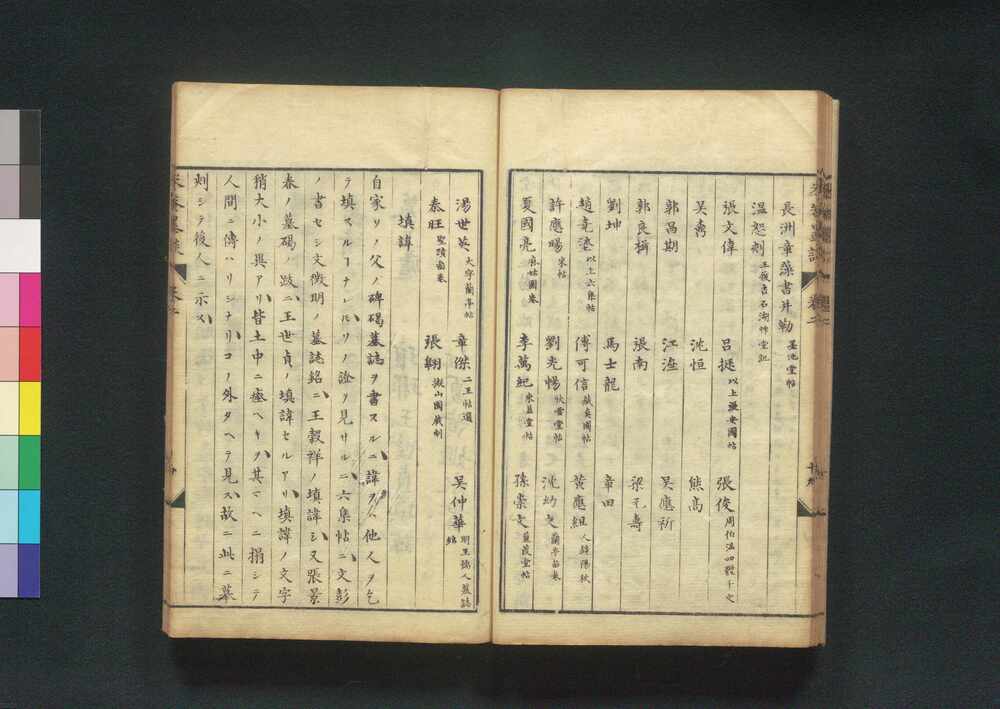 長洲章藻書并勒 墨池堂帖
温恕刻 王履吉石湖草堂記
張文偉 呂挺 以上 圖帖 張俊 周伯温四體千文
吴鼒 沈恒 熊高
郭昌期 江潅 吴應祈
郭良楫 張南 梁元壽
劉坤 馬士龍 章田
趙 以上六集帖 傅可信 戲奧圖帖 黄應組 人鏡陽秋
許應暘 米帖 劉光暘 快雪堂帖 沈幼文 蘭亭 卷
夏國亮 麻姑圖卷 李萬紀 末益堂帖 孫崇文 堂帖
湯世英 大字蘭亭帖 章傑 二王帖選 吴仲華 明王 人墓誌銘
秦旺 聖蹟 卷 張翺 擬山園戲刻
填諱
自家リノ父ノ碑碣墓誌ヲ書スルニ諱ヲハ他人ヲ乞
テ填スルーナレハリノ證ヲ見サルニ六集帖ニ文彭
ノ書セシ文徴明ノ墓誌銘ニ王穀祥ノ填諱シ又張景
春ノ墓碣ノ跋ニ王世貞ノ填諱セルアリ填諱ノ文字
稍大小ノ異アリ皆土中ニ瘞ヘキヲ其マヘニ搨シテ
人間ニ傳ハリシナリコノ外タヘテ見ス故ニ此ニ摹
刻シテ後人ニ示ス